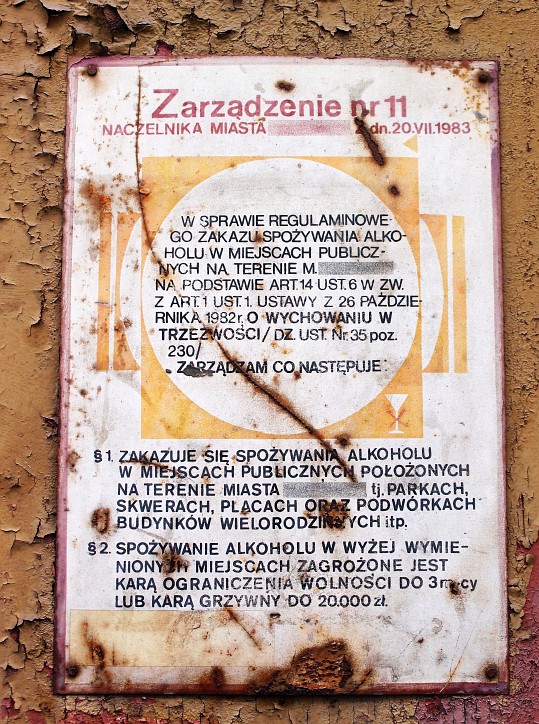 Zarządzenie nr 11
NACZELNIKA MIASTA Z dn. 20.VII.1983
W SPRAWIE REGULAMINOWE-
GO ZAKAZU SPOŻYWANIA ALKO-
HOLU W MIEJSCACH PUBLICZ-
NYCH NA TERENIE M.
NA PODSTAWIE ART.14 UST.6 W ZW.
Z ART.1 UST.1. USTAWY Z 26 PAŹDZIE-
RNIKA 1982r. O WYCHOWANIU W
TRZEŹWOŚCI/ DZ. UST. Nr.35 poz.
230/
ZARZĄDZAM CO NASTĘPUJE:
§ 1. ZAKAZUJE SIĘ SPOŻYWANIA ALKOHOLU
W MIEJSCACH PUBLICZNYCH POŁOŻONYCH
NA TERENIE MIASTA tj. PARKACH,
SKWERACH, PLACACH ORAZ PODWÓRKACH
BUDYNKÓW WIELORODZINNYCH itp.
§ 2. SPOŻYWANIE ALKOHOLU W WYŻEJ WYMIE-
NIONYCH MIEJSCACH ZAGROŻONE JEST
KARĄ OGRANICZENIA WOLNOŚCI DO 3m-cy
LUB KARĄ GRZYWNY DO 20.000 zł.